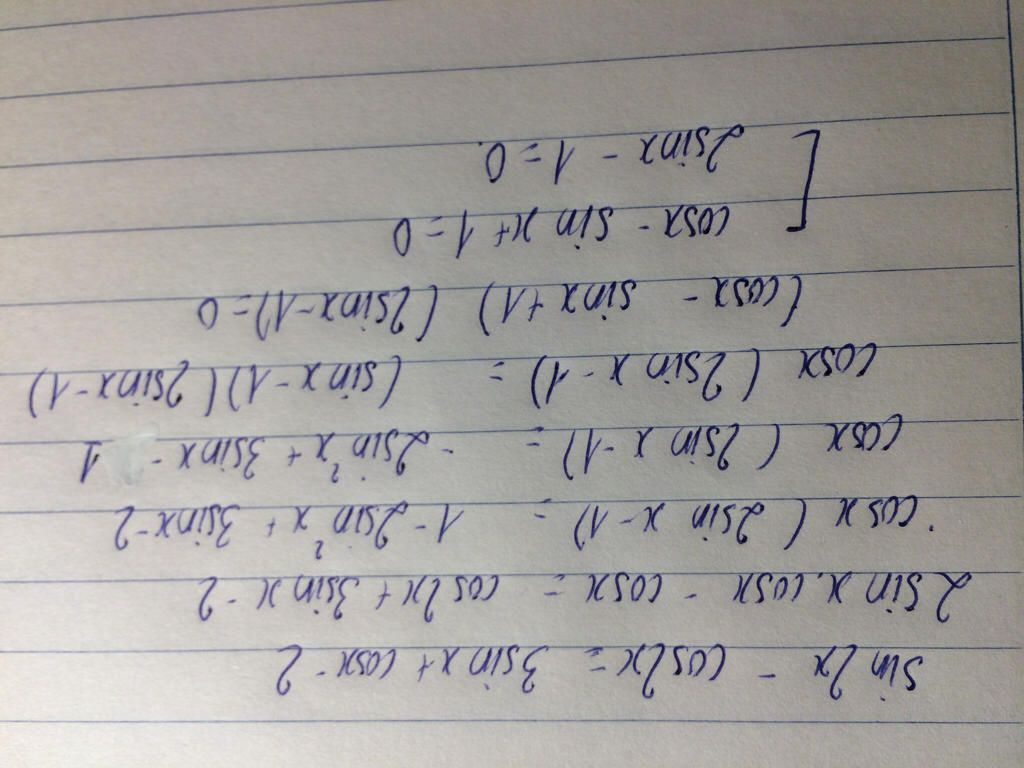 sin2x - cos2x = 3sinx + cosx - 2
2sinx.cosx - cosx = cos2x + 3sinx - 2
cosx (2sinx - 1) = 1 - 2sin²x + 3sinx - 2
cosx (2sinx - 1) = -2sin²x + 3sinx - 1
cosx (2sinx - 1) = (sinx - 1)(2sinx - 1)
(cosx - sinx + 1) (2sinx - 1) = 0
[ cosx - sinx + 1 = 0
2sinx - 1 = 0.